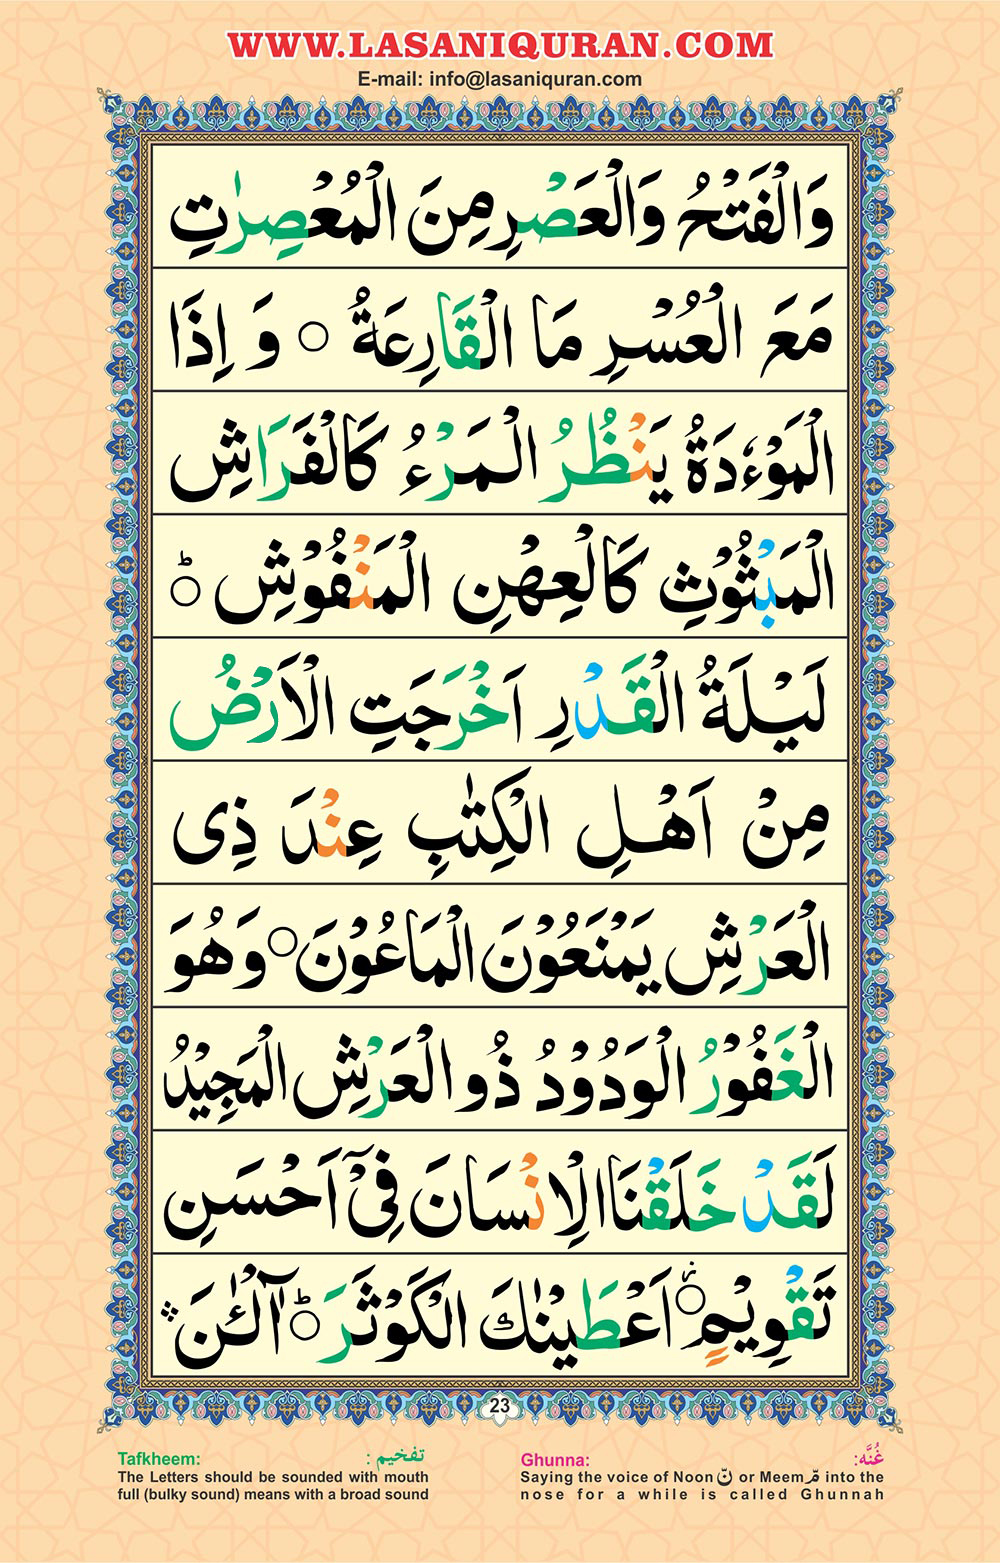 WWW.LASANIQURAN.COM
E-mail: info@lasaniquran.com
وَالْفَتْحُ وَالْعَصْرِ مِنَ الْمُعْصِرٰتِ
مَعَ الْعُسْرِ مَا الْقَارِعَةُ ○ وَ اِذَا
الْمَوْءٗدَةُ يَنْظُرُ الْمَرْءُ كَالْفَرَاشِ
الْمَبْثُوْثِ كَالْعِهْنِ الْمَنْفُوْشِ ؕ○
لَيْلَةُ الْقَدْرِ اَخْرَجَتِ الْاَرْضُ
مِنْ اَهْلِ الْكِتٰبِ عِنْدَ ذِى
الْعَرْشِ يَمْنَعُوْنَ الْمَاعُوْنَ ○ وَهُوَ
الْغَفُوْرُ الْوَدُوْدُ ذُو الْعَرْشِ الْمَجِيْدُ
لَقَدْ خَلَقْنَا الْاِنْسَانَ فِىْٓ اَحْسَنِ
تَقْوِيْمٍ ○ اَعْطَيْنٰكَ الْكَوْثَرَ ؕ○ آلْـٰٔنَ
23
Tafkheem: تفخيم :
The Letters should be sounded with mouth
full (bulky sound) means with a broad sound
Ghunna: غُنَّه:
Saying the voice of Noon نّ or Meem مّ into the
nose for a while is called Ghunnah